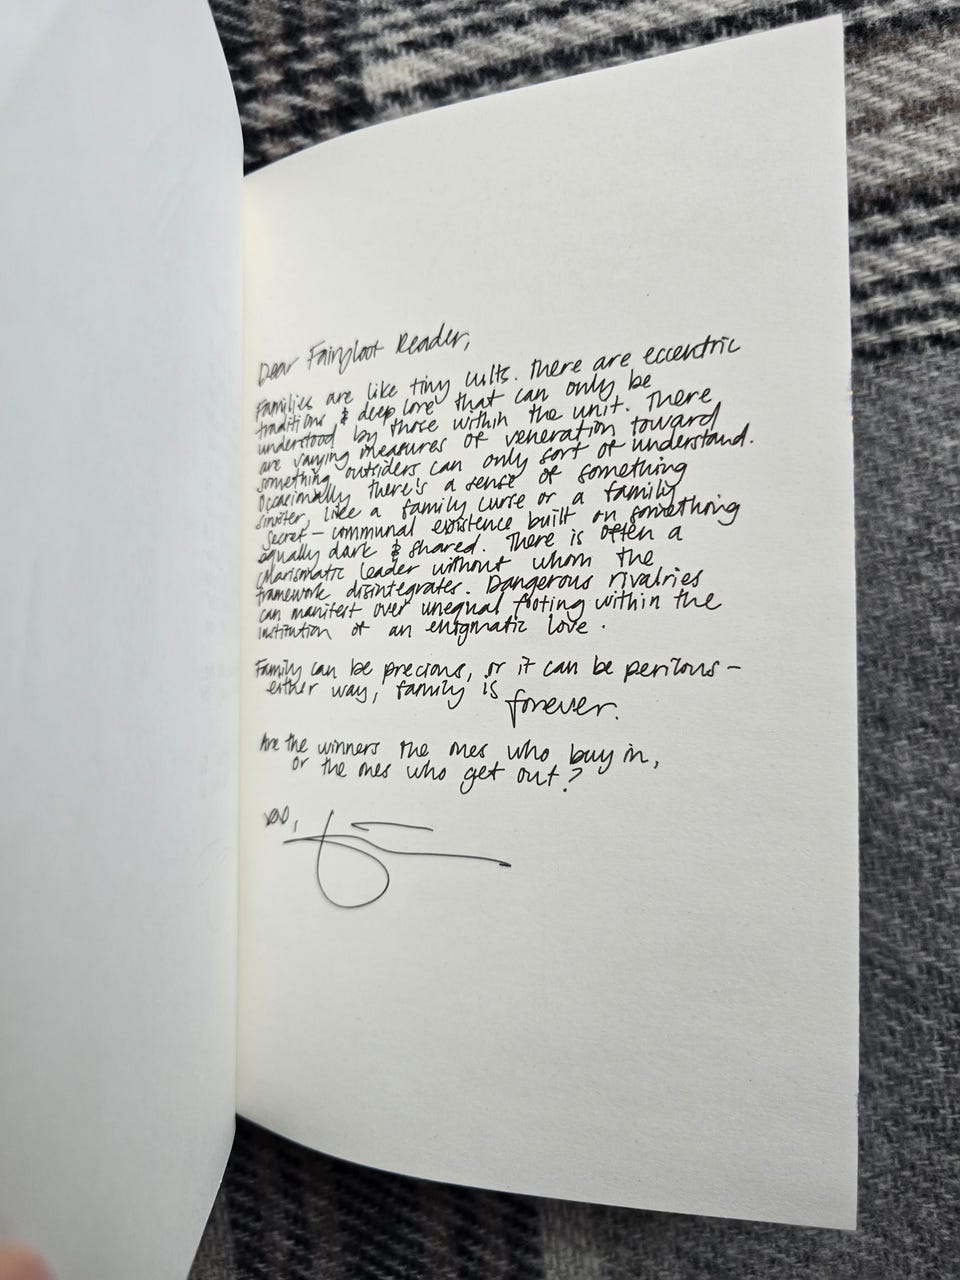 Dear Fairyloot Reader,
Families are like tiny cults. There are eccentric
traditions & deep lore that can only be
understood by those within the unit. There
are varying measures of veneration toward
something outsiders can only sort of understand.
Occasionally there's a sense of something
sinister, like a family curse or a family
secret – communal existence built on something
equally dark & shared. There is often a
charismatic leader without whom the
framework disintegrates. Dangerous rivalries
can manifest over unequal footing within the
institution of an enigmatic love.
Family can be precious, or it can be perilous –
either way, family is
forever.
Are the winners the ones who buy in,
or the ones who get out?